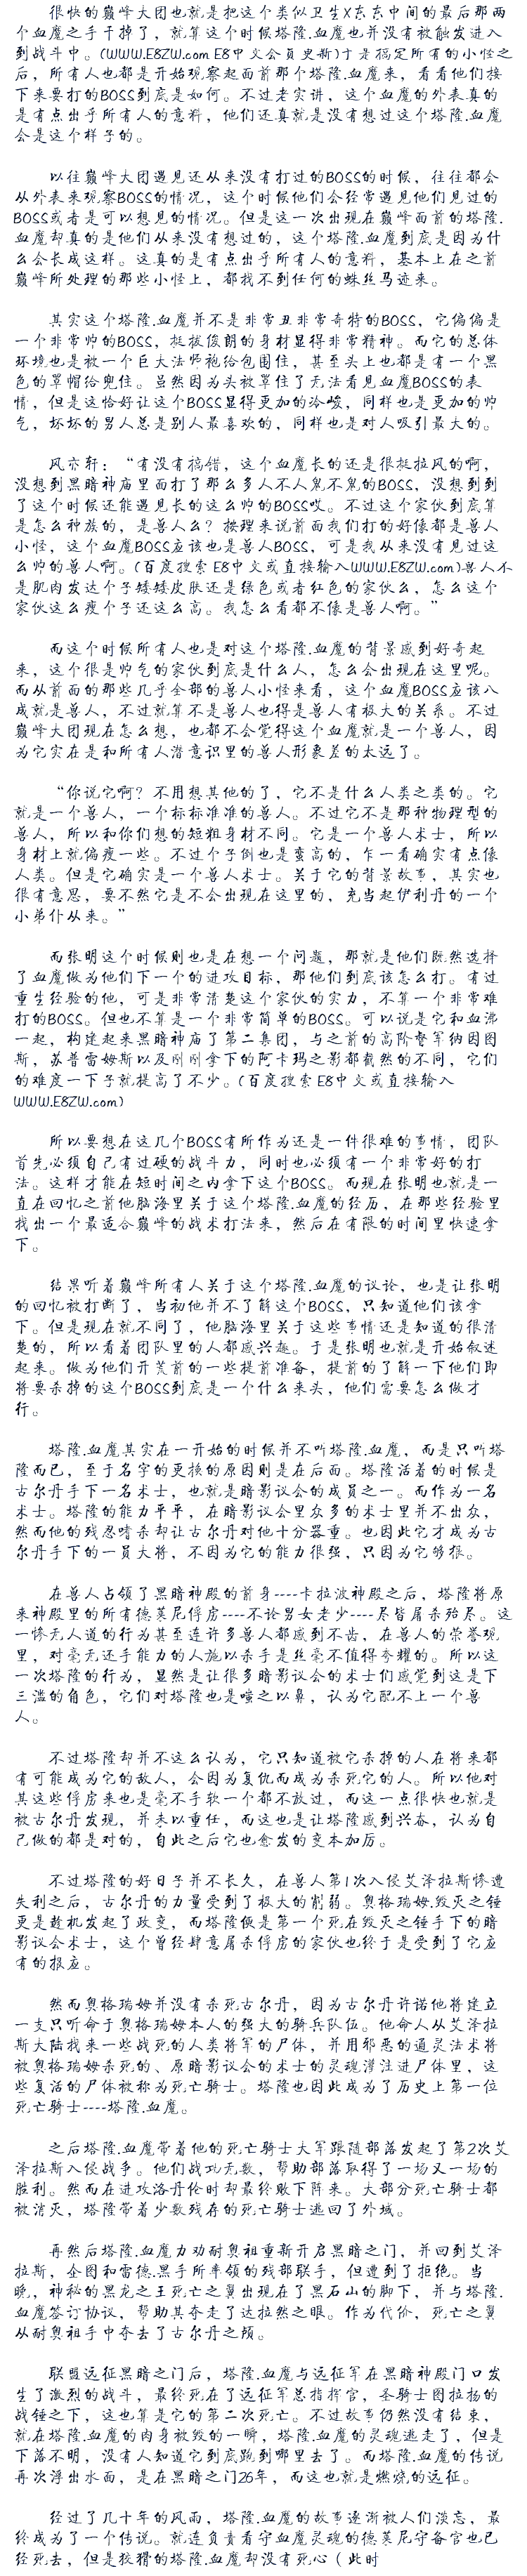 很快的巅峰大团也就是把这个类似卫生X东东中间的最后那两
个血魔之手干掉了，就算这个时候塔隆.血魔也并没有被触发进入
到战斗中。(WWW.E8ZW.com E8中文会员更新)于是搞定所有的小怪之
后，所有人也都是开始观察起面前那个塔隆.血魔来，看看他们接
下来要打的BOSS到底是如何。不过老实讲，这个血魔的外表真的
是有点出乎所有人的意料，他们还真就是没有想过这个塔隆.血魔
会是这个样子的。
以往巅峰大团遇见还从来没有打过的BOSS的时候，往往都会
从外表来观察BOSS的情况，这个时候他们会经常遇见他们见过的
BOSS或者是可以想见的情况。但是这一次出现在巅峰面前的塔隆.
血魔却真的是他们从来没有想过的，这个塔隆.血魔到底是因为什
么会长成这样。这真的是有点出乎所有人的意料，基本上在之前
巅峰所处理的那些小怪上，都找不到任何的蛛丝马迹来。
其实这个塔隆.血魔并不是非常丑非常奇特的BOSS，它偏偏是
一个非常帅的BOSS，挺拔俊朗的身材显得非常精神。而它的总体
环境也是被一个巨大法师袍给包围住，甚至头上也都是有一个黑
色的罩帽给兜住。虽然因为头被罩住了无法看见血魔BOSS的表
情，但是这恰好让这个BOSS显得更加的冷峻，同样也是更加的帅
气，坏坏的男人总是别人最喜欢的，同样也是对人吸引最大的。
风亦轩：“有没有搞错，这个血魔长的还是很挺拉风的啊，
没想到黑暗神庙里面打了那么多人不人鬼不鬼的BOSS，没想到到
了这个时候还能遇见长的这么帅的BOSS哎。不过这个家伙到底算
是怎么种族的，是兽人么？按理来说前面我们打的好像都是兽人
小怪，这个血魔BOSS应该也是兽人BOSS，可是我从来没有见过这
么帅的兽人啊。(百度搜索 E8中文或直接输入WWW.E8ZW.com)兽人不
是肌肉发达个子矮矮皮肤还是绿色或者红色的家伙么，怎么这个
家伙这么瘦个子还这么高。我怎么看都不像是兽人啊。”
而这个时候所有人也是对这个塔隆.血魔的背景感到好奇起
来，这个很是帅气的家伙到底是什么人，怎么会出现在这里呢。
而从前面的那些几乎全部的兽人小怪来看，这个血魔BOSS应该八
成就是兽人，不过就算不是兽人也得是兽人有极大的关系。不过
巅峰大团现在怎么想，也都不会觉得这个血魔就是一个兽人，因
为它实在是和所有人潜意识里的兽人形象差的太远了。
“你说它啊？不用想其他的了，它不是什么人类之类的。它
就是一个兽人，一个标标准准的兽人。不过它不是那种物理型的
兽人，所以和你们想的短粗身材不同。它是一个兽人术士，所以
身材上就偏瘦一些。不过个子倒也是蛮高的，乍一看确实有点像
人类。但是它确实是一个兽人术士。关于它的背景故事，其实也
很有意思，要不然它是不会出现在这里的，充当起伊利丹的一个
小弟仆从来。”
而张明这个时候则也是在想一个问题，那就是他们既然选择
了血魔做为他们下一个的进攻目标，那他们到底该怎么打。有过
重生经验的他，可是非常清楚这个家伙的实力，不算一个非常难
打的BOSS。但也不算是一个非常简单的BOSS。可以说是它和血沸
一起，构建起来黑暗神庙了第二集团，与之前的高阶督军纳因图
斯，苏普雷姆斯以及刚刚拿下的阿卡玛之影都截然的不同，它们
的难度一下子就提高了不少。(百度搜索 E8中文或直接输入
WWW.E8ZW.com)
所以要想在这几个BOSS有所作为还是一件很难的事情，团队
首先必须自己有过硬的战斗力，同时也必须有一个非常好的打
法。这样才能在短时间之内拿下这个BOSS。而现在张明也就是一
直在回忆之前他脑海里关于这个塔隆.血魔的经历，在那些经验里
找出一个最适合巅峰的战术打法来，然后在有限的时间里快速拿
下。
结果听着巅峰所有人关于这个塔隆.血魔的议论，也是让张明
的回忆被打断了，当初他并不了解这个BOSS，只知道他们该拿
下。但是现在就不同了，他脑海里关于这些事情还是知道的很清
楚的，所以看着团队里的人都感兴趣。于是张明也就是开始叙述
起来。做为他们开荒前的一些提前准备，提前的了解一下他们即
将要杀掉的这个BOSS到底是一个什么来头，他们需要怎么做才
行。
塔隆.血魔其实在一开始的时候并不听塔隆.血魔，而是只听塔
隆而已，至于名字的更换的原因则是在后面。塔隆活着的时候是
古尔丹手下一名术士，也就是暗影议会的成员之一。而作为一名
术士。塔隆的能力平平，在暗影议会里众多的术士里并不出众，
然而他的残忍嗜杀却让古尔丹对他十分器重。也因此它才成为古
尔丹手下的一员大将，不因为它的能力很强，只因为它够狠。
在兽人占领了黑暗神殿的前身----卡拉波神殿之后，塔隆将原
来神殿里的所有德莱尼俘虏----不论男女老少----尽皆屠杀殆尽。这
一惨无人道的行为甚至连许多兽人都感到不齿，在兽人的荣誉观
里，对毫无还手能力的人施以杀手是丝毫不值得夸耀的。所以这
一次塔隆的行为，显然是让很多暗影议会的术士们感觉到这是下
三滥的角色，它们对塔隆也是嗤之以鼻，认为它配不上一个兽
人。
不过塔隆却并不这么认为，它只知道被它杀掉的人在将来都
有可能成为它的敌人，会因为复仇而成为杀死它的人。所以他对
其这些俘虏来也是毫不手软一个都不放过，而这一点很快也就是
被古尔丹发现，并未以重任，而这也是让塔隆感到兴奋，认为自
己做的都是对的，自此之后它也愈发的变本加厉。
不过塔隆的好日子并不长久，在兽人第1次入侵艾泽拉斯惨遭
失利之后，古尔丹的力量受到了极大的削弱。奥格瑞姆.毁灭之锤
更是趁机发起了政变，而塔隆便是第一个死在毁灭之锤手下的暗
影议会术士，这个曾经肆意屠杀俘虏的家伙也终于是受到了它应
有的报应。
然而奥格瑞姆并没有杀死古尔丹，因为古尔丹许诺他将建立
一支只听命于奥格瑞姆本人的强大的骑兵队伍。他命人从艾泽拉
斯大陆找来一些战死的人类将军的尸体，并用邪恶的通灵法术将
被奥格瑞姆杀死的、原暗影议会的术士的灵魂灌注进尸体里，这
些复活的尸体被称为死亡骑士。塔隆也因此成为了历史上第一位
死亡骑士----塔隆.血魔。
之后塔隆.血魔带着他的死亡骑士大军跟随部落发起了第2次艾
泽拉斯入侵战争。他们战功无数，帮助部落取得了一场又一场的
胜利。然而在进攻洛丹伦时却最终败下阵来。大部分死亡骑士都
被消灭，塔隆带着少数残存的死亡骑士逃回了外域。
再然后塔隆.血魔力劝耐奥祖重新开启黑暗之门，并回到艾泽
拉斯，企图和雷德.黑手所率领的残部联手，但遭到了拒绝。当
晚，神秘的黑龙之王死亡之翼出现在了黑石山的脚下，并与塔隆.
血魔签订协议，帮助其夺走了达拉然之眼。作为代价，死亡之翼
从耐奥祖手中夺去了古尔丹之颅。
联盟远征黑暗之门后，塔隆.血魔与远征军在黑暗神殿门口发
生了激烈的战斗，最终死在了远征军总指挥官，圣骑士图拉扬的
战锤之下，这也算是它的第二次死亡。不过故事仍然没有结束，
就在塔隆.血魔的肉身被毁的一瞬，塔隆.血魔的灵魂逃走了，但是
下落不明，没有人知道它到底跑到哪里去了。而塔隆.血魔的传说
再次浮出水面，是在黑暗之门26年，而这也就是燃烧的远征。
经过了几十年的风雨，塔隆.血魔的故事逐渐被人们淡忘，最
终成为了一个传说。就连负责看守血魔灵魂的德莱尼守备官也已
经死去，但是狡猾的塔隆.血魔却没有死心（此时